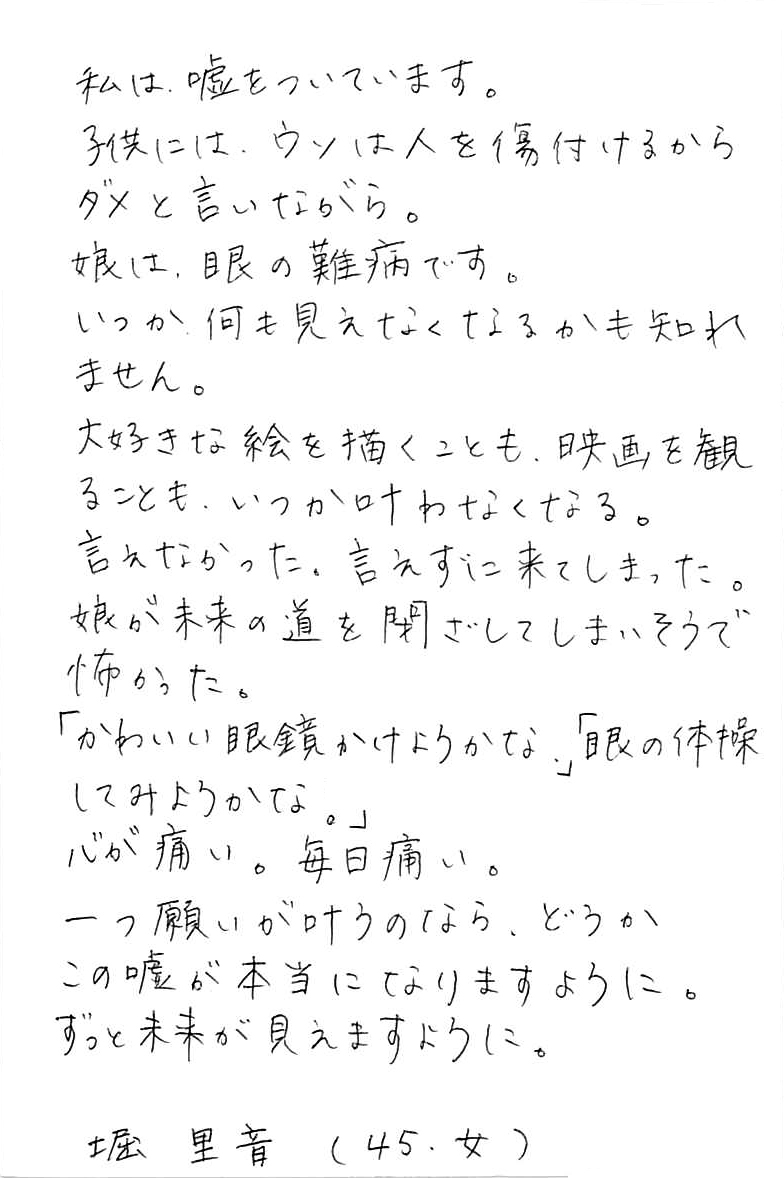 私は、嘘をついています。
子供には、ウソは人を傷付けるから
ダメと言いながら。
娘は、眼の難病です。
いつか、何も見えなくなるかも知れ
ません。
大好きな絵を描くことも、映画を観
ることも、いつか叶わなくなる。
言えなかった。言えずに来てしまった。
娘が未来の道を閉ざしてしまいそうで
怖かった。
「かわいい眼鏡かけようかな。」「眼の体操
してみようかな。」
心が痛い。毎日痛い。
一つ願いが叶うのなら、どうか
この嘘が本当になりますように。
ずっと未来が見えますように。
堀 里音 (45.女)